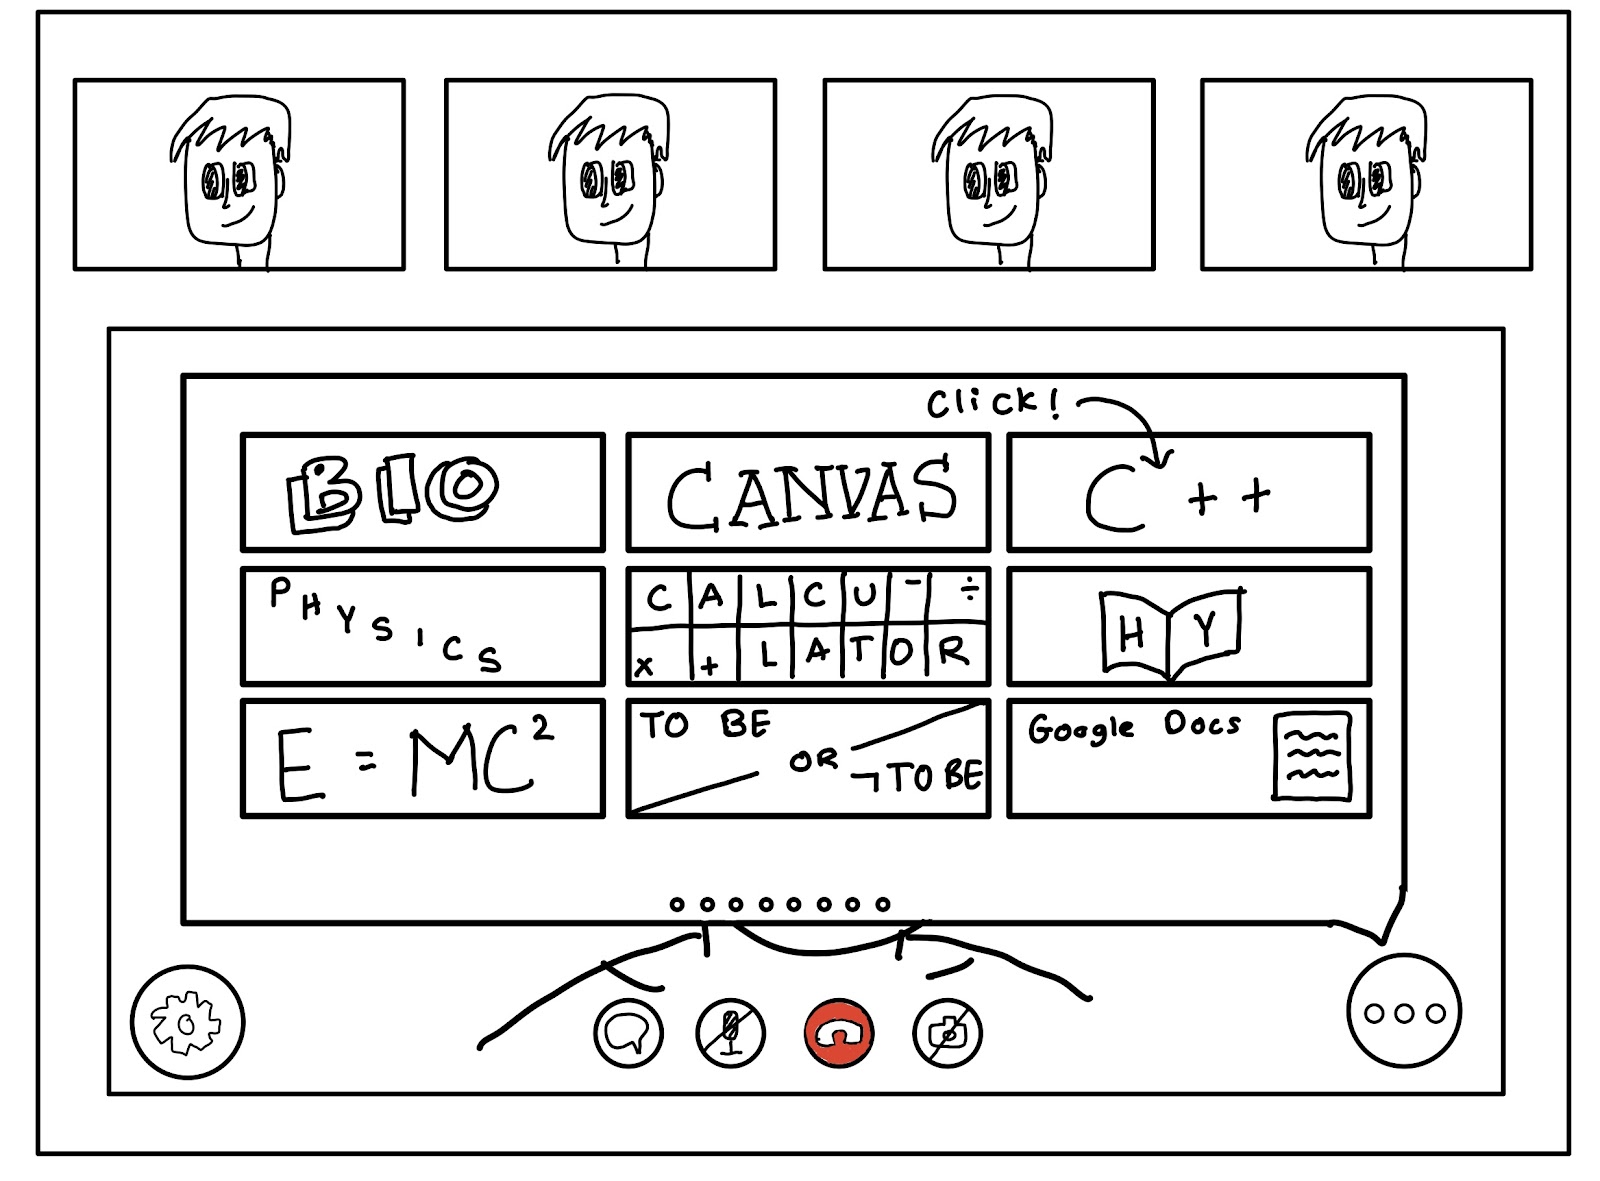 Click!
BIO
CANVAS
C++
PHYSICS
C A L C U - ÷
x + L A T O R
H Y
E = MC²
TO BE
OR
¬TO BE
Google Docs